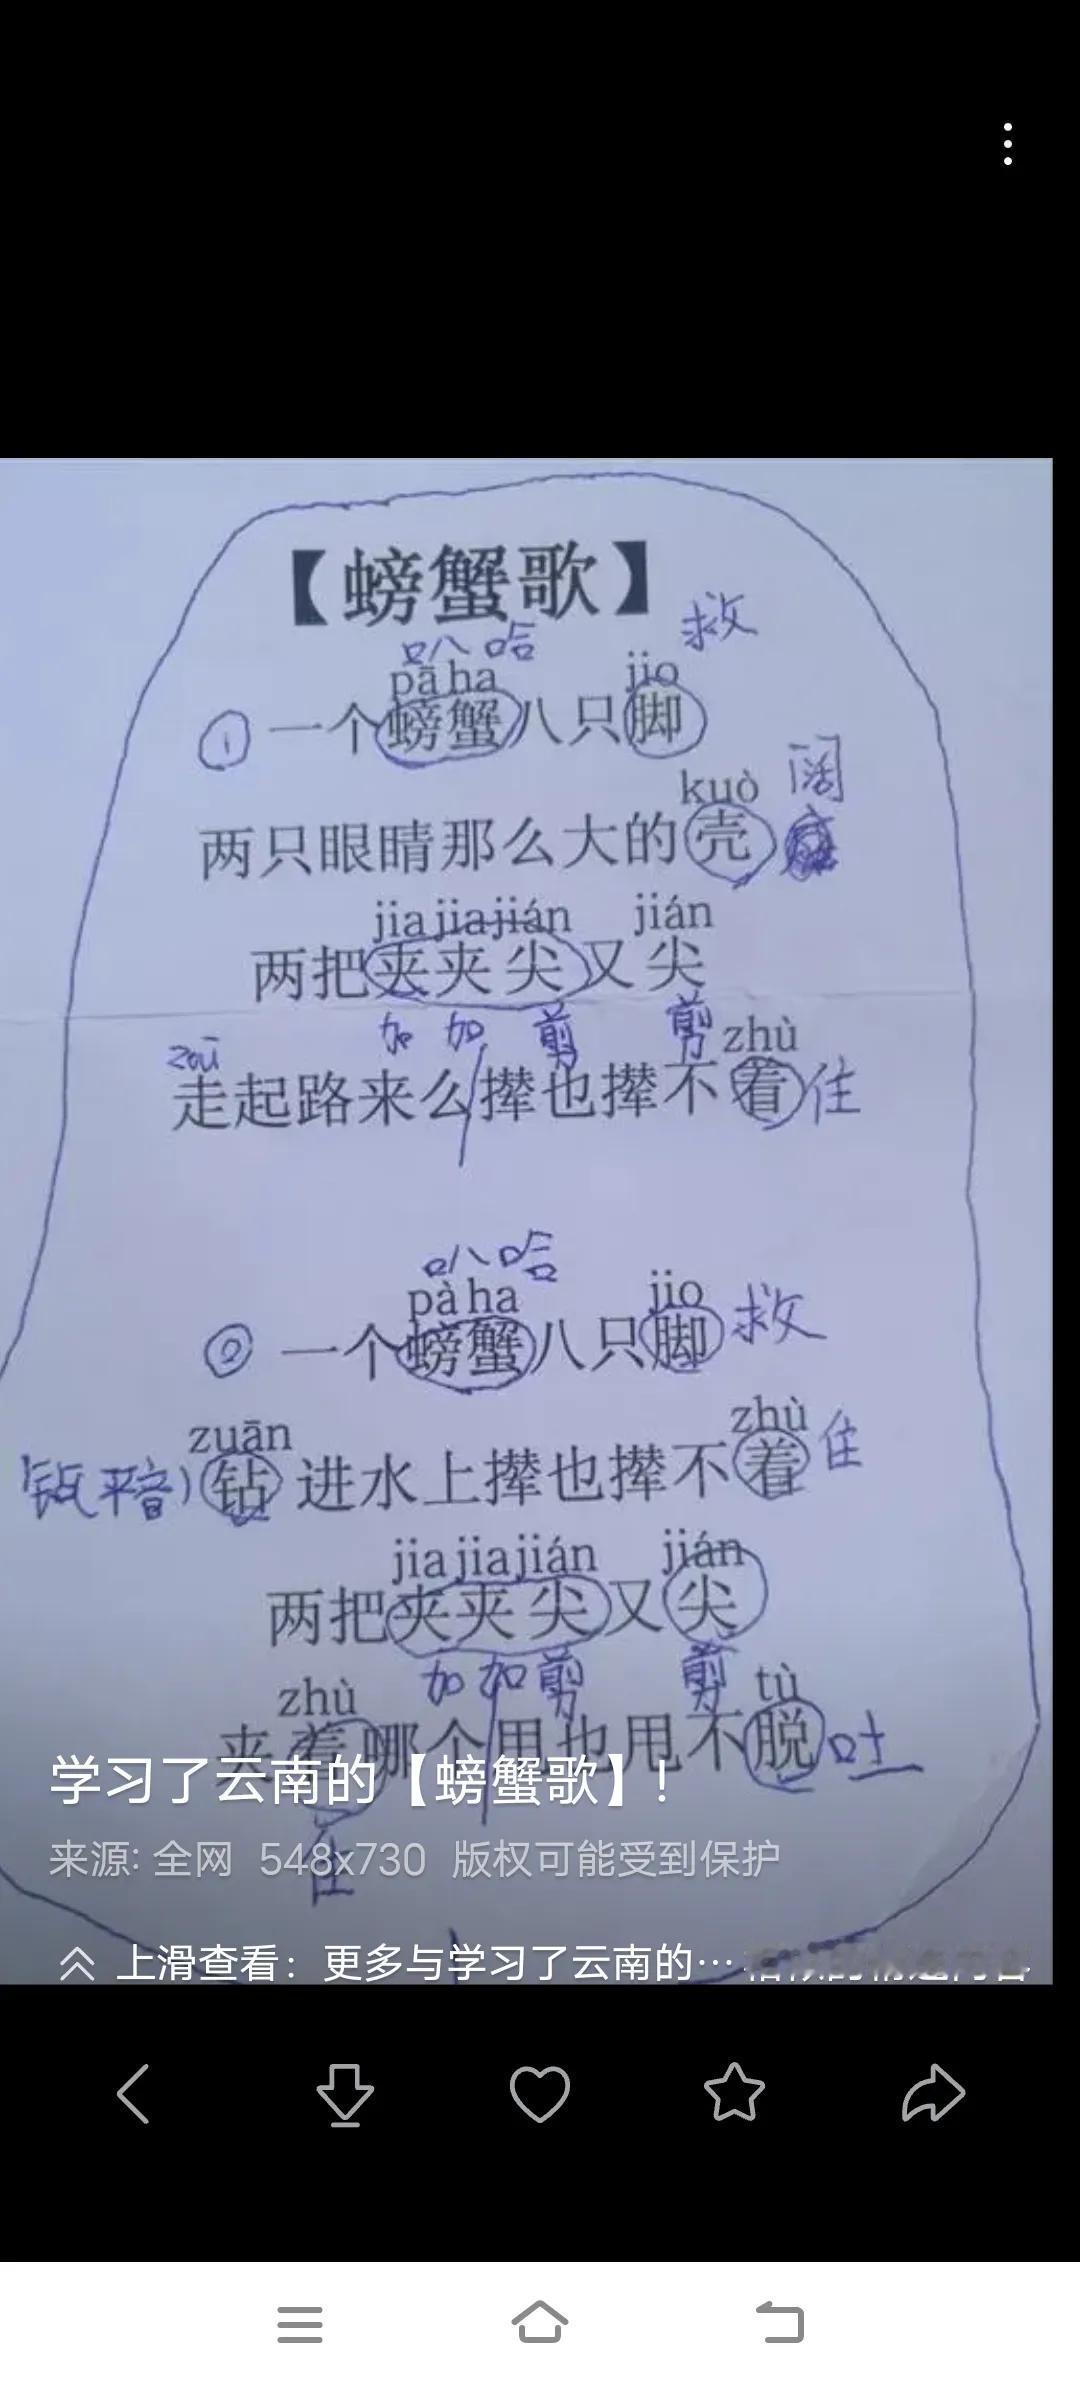 【螃蟹歌】
叭哈 救
pā ha jio
① 一个螃蟹八只脚
kuò 阔
两只眼睛那么大的壳
jia jia jián jián
两把夹夹尖又尖
加 加 剪 剪
zhù
走起路来么撵也撵不着 住
叭哈
pà ha jio
② 一个螃蟹八只脚 救
zuān zhù
钻进水上撵也撵不着 住
jia jia jián jián
两把夹夹尖又尖
加 加 剪 剪
zhù tù
夹着哪个甩也甩不脱 吐
住
学习了云南的【螃蟹歌】!
来源: 全网 548x730 版权可能受到保护
上滑查看: 更多与学习了云南的…